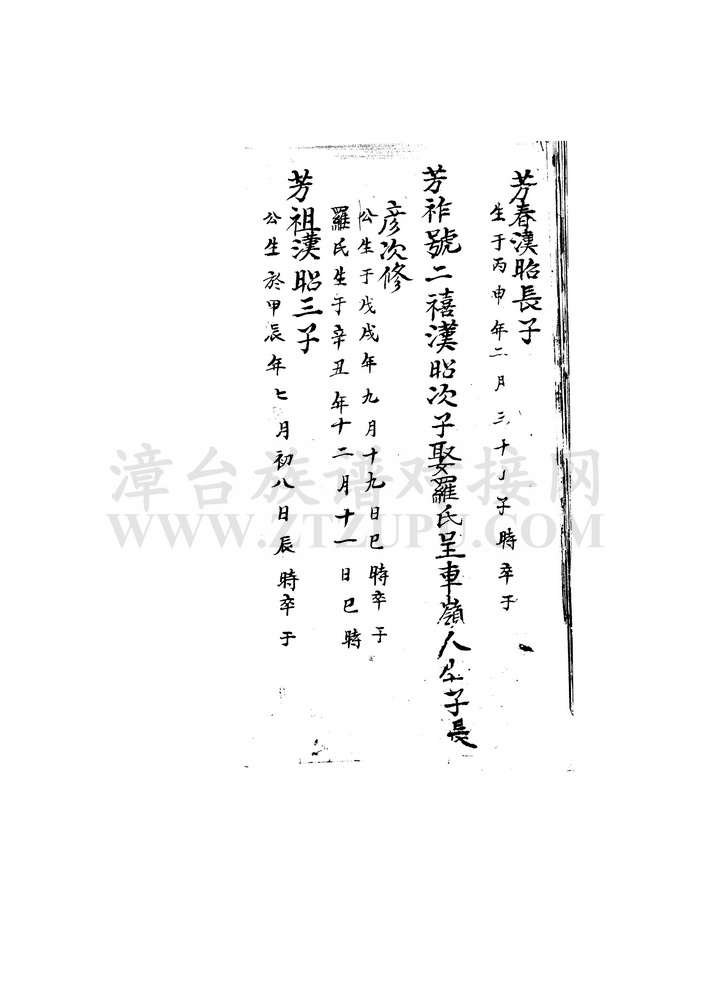 芳春漢昭長子
生于丙申年二月三十日子時卒于
芳祚號二禧漢昭次子娶羅氏呈車嶺人生子長
彦次修
公生于戊戌年九月十九日巳時卒于
羅氏生于辛丑年十二月十一日巳時
芳祖漢昭三子
公生於甲辰年七月初八日辰時卒于
漳台族谱对接网
WWW.ZTZUPU.COM